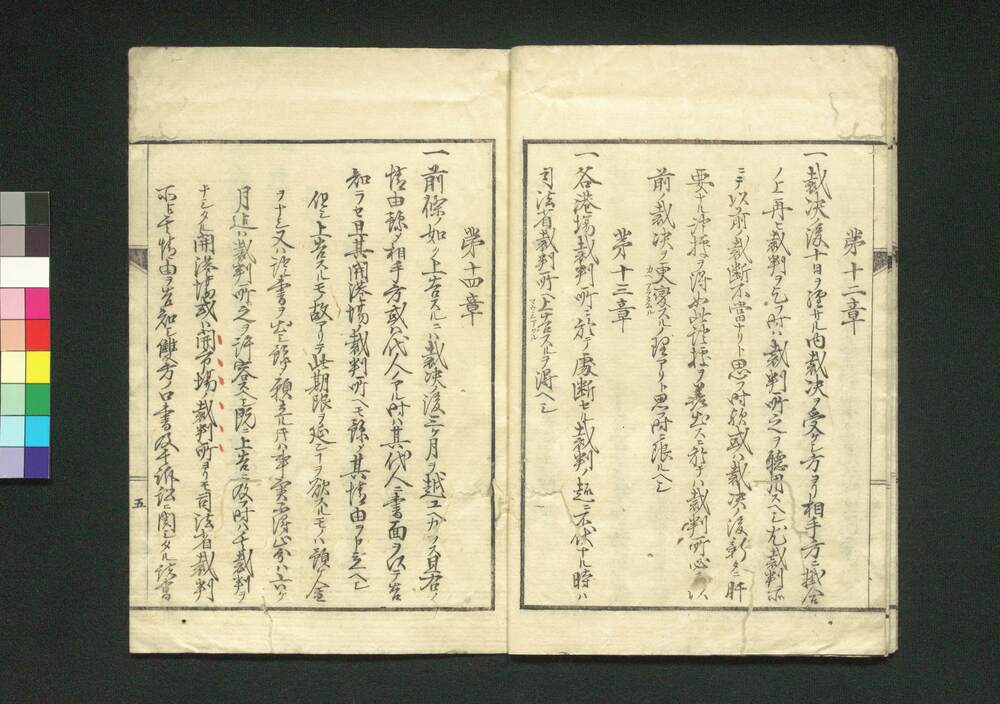 第十二章
一裁決後十日ヲ過サル内裁決ヲ受ケシ方ヨリ相手方ニ掛合
ノ上再ヒ裁判ヲ乞フ時ハ裁判所之ヲ聴用スヘシ尤裁判所
ニテ以前ノ裁断不當ナリト思フ時歟或ハ裁決ノ後新タニ肝
要ナル証拠ヲ得如此証拠ヲ差出スニ於テハ裁判所心ニ以
前ノ裁決ヲ更変スルノ理アリト思フ時ニ限ルヘシ
第十三章
一各港場裁判所ニ於テ處断セル裁判ノ趣ニ不伏ナル時ハ
司法省裁判所ヘ上告スルヲ得ヘシ
第十四章
一前條ノ如ク上告スルニハ裁決後三ヶ月ヲ越ユ可カラス且右ノ
情由豫メ相手方或ハ代人アル時ハ其代人ニ書面ヲ以テ告
知ラセ且其開港場裁判所ヘモ豫メ其情由ヲ申立ヘシ
但シ上告スルモノ故アリテ此期限ヲ延シ
ヲ欲スルモノハ願人
月迄ハ裁判所之ヲ許容スヘシ既ニ上告ニ及フ時ハ
裁判ヲ
ナシタル開港場或ハ開市場ノ裁判所ヨリモ司法省裁判
所ヘ其情由ヲ告知シ雙方ノ口書及ヒ訴訟ニ関シタル諸書
五